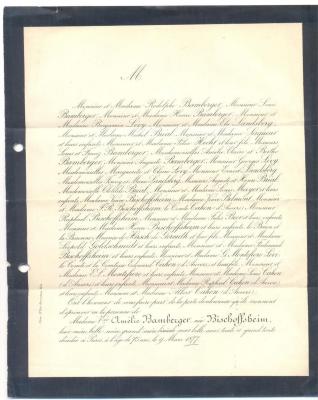 M
Monsieur et Madame Rodolphe Bamberger, Monsieur Louis
Bamberger, Monsieur et Madame Henri Bamberger, Monsieur et
Madame Benjamin Levy, Monsieur et Madame Elie Landsberg,
Monsieur et Madame Michel Bréal, Monsieur et Madame
et leurs enfants, Monsieur et Madame Félix Hecht et leur fils, Messieurs
Louis et Franz Bamberger, Mesdemoiselles Amélie Claire et Berthe
Bamberger, Monsieur Auguste Bamberger, Monsieur Georges Levy
Mesdemoiselles Marguerite et Claire Levy, Monsieur Ernest Landsberg
Mademoiselle Landsberg, Messieurs Auguste et Bréal
Mademoiselle Clotilde Bréal, Monsieur et Madame Louis Meyer et leurs
enfants, Madame Bischoffsheim, Madame Palmire, Monsieur
et Madame Bischoffsheim, le Comte Cahen d'Anvers, Monsieur
Raphaël Bischoffsheim, Monsieur et Madame Jules Beer et leurs enfants
Monsieur et Madame Henri Bischoffsheim et leurs enfants, le Baron et
la Baronne Maurice de Hirsch de Gereuth et leur fils, Monsieur et Madame
Léopold Goldschmidt et leurs enfants, Monsieur et Madame Ferdinand
Bischoffsheim et leurs enfants, Monsieur et Madame G. Montefiore Levi
le Comte et la Comtesse Edouard Cahen d'Anvers et leurs fils, Monsieur et
Madame E. L. Montefiore et leurs enfants, Monsieur et Madame Louis Cahen
d'Anvers et leurs enfants, Monsieur et Madame Raphaël Cahen d'Anvers
et leurs enfants, Monsieur et Madame Albert Cahen d'Anvers,
Ont l'honneur de vous faire part de la perte douloureuse qu'ils viennent
d'éprouver en la personne de
Madame Vve Amélie Bamberger née Bischoffsheim,
leur mère, belle mère, grand'mère, sœur, belle sœur, tante et grand'tante
décédée à Paris, à l'âge de ans, le 9 Mars 1877.